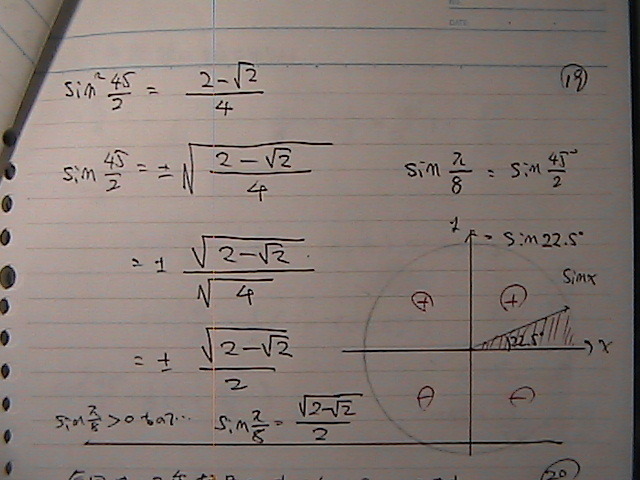 sin² 45/2 = (2-√2)/4
⑲
sin 45/2 = ±√((2-√2)/4)
sin π/8 = sin 45°/2
= sin 22.5°
= ± √(2-√2)/√4
sin x
⊕ ⊕
22.5°
x
= ± √(2-√2)/2
⊖ ⊖
sin π/8 > 0
sin π/8 = √(2-√2)/2
⑳